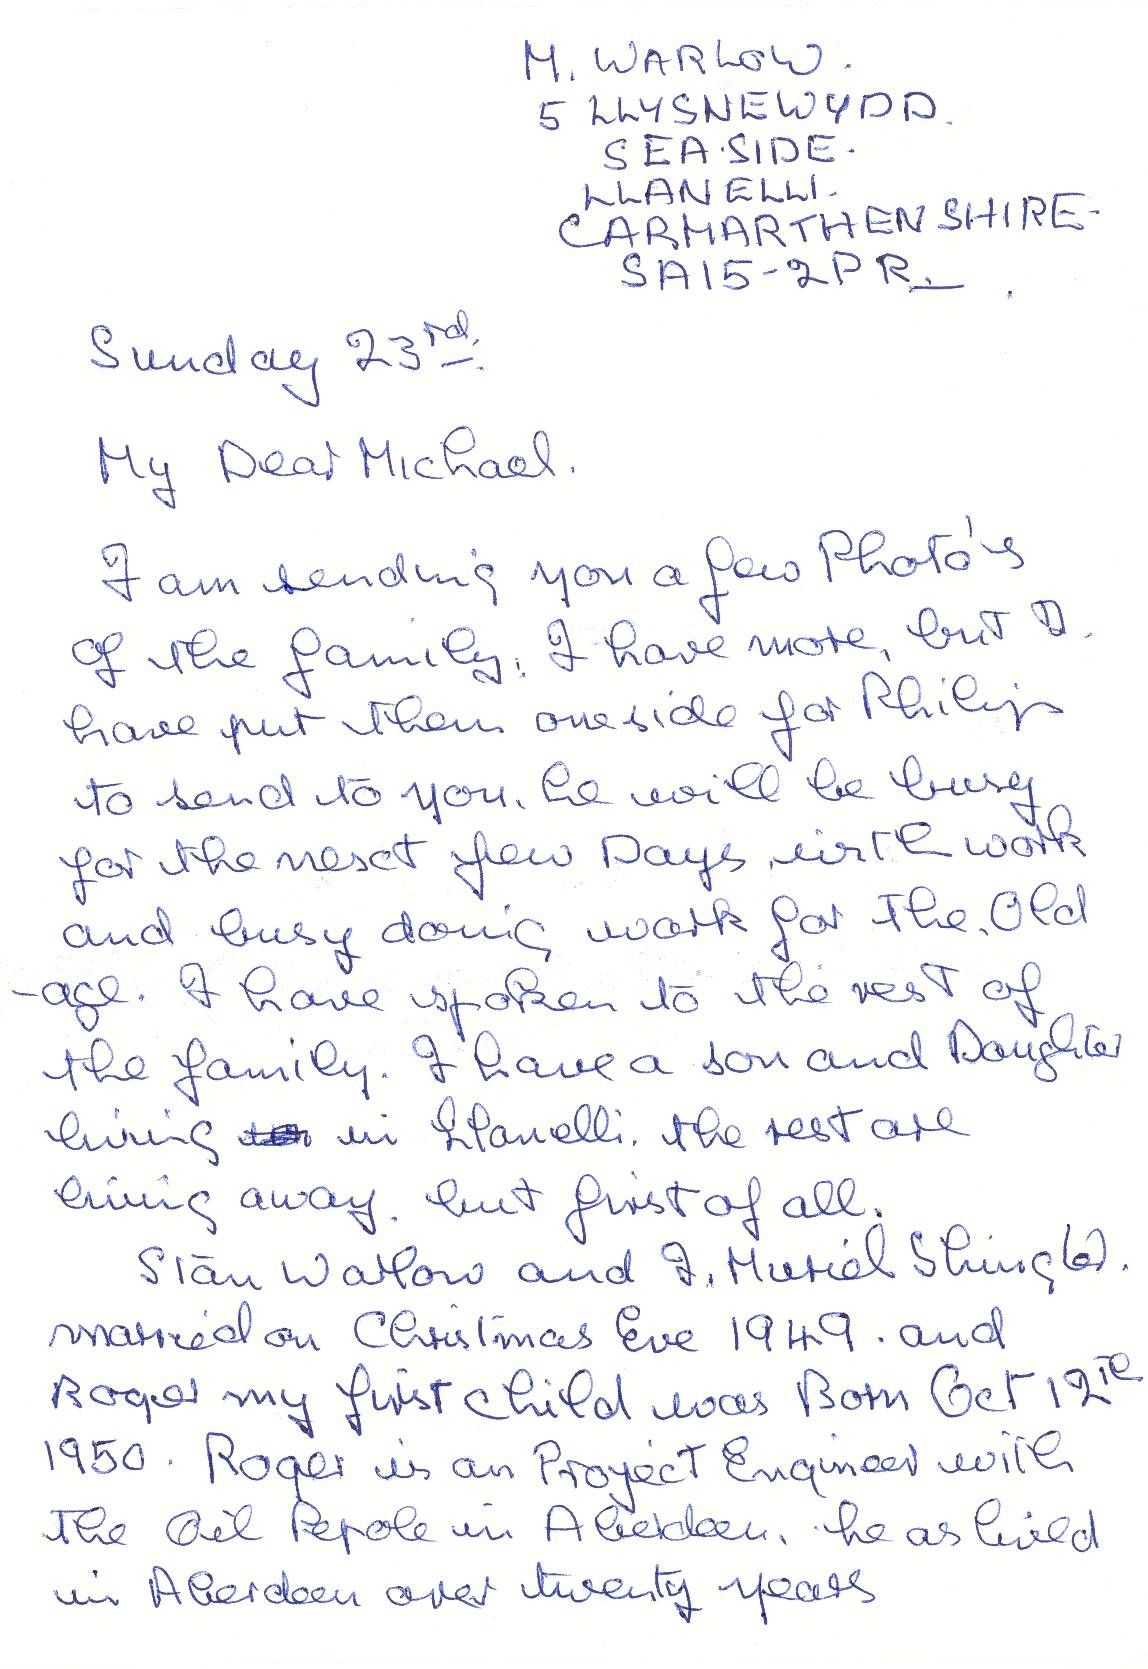 M. WARLOW.
5 LLYSNEWYDD.
SEA.SIDE.
LLANELLI.
CARMARTHENSHIRE-
SA15-2PR.
Sunday 23rd.
My Dear Michael.
I am sending you a few Photo's
of the family. I have more, but I.
have put them one side for Philip
to send to you. he will be busy
for the nesct few Days with work
and busy doing work for the. Old
-age. I have spoken to the rest of
the family. I have a son and Daughter
living in Llanelli. the rest are
living away. but first of all.
Stan Warlow and I, Muriel Shingler.
married on Christmas Eve 1949. and
Roger my first child was Born Oct 12th
1950. Roger is an Project Engineer with
the Oil Pepole in Aberdeen. he as lived
in Aberdeen over twenty years